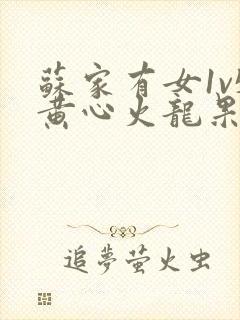 蘇家有女1v
黃心火龍果
追夢萤火虫